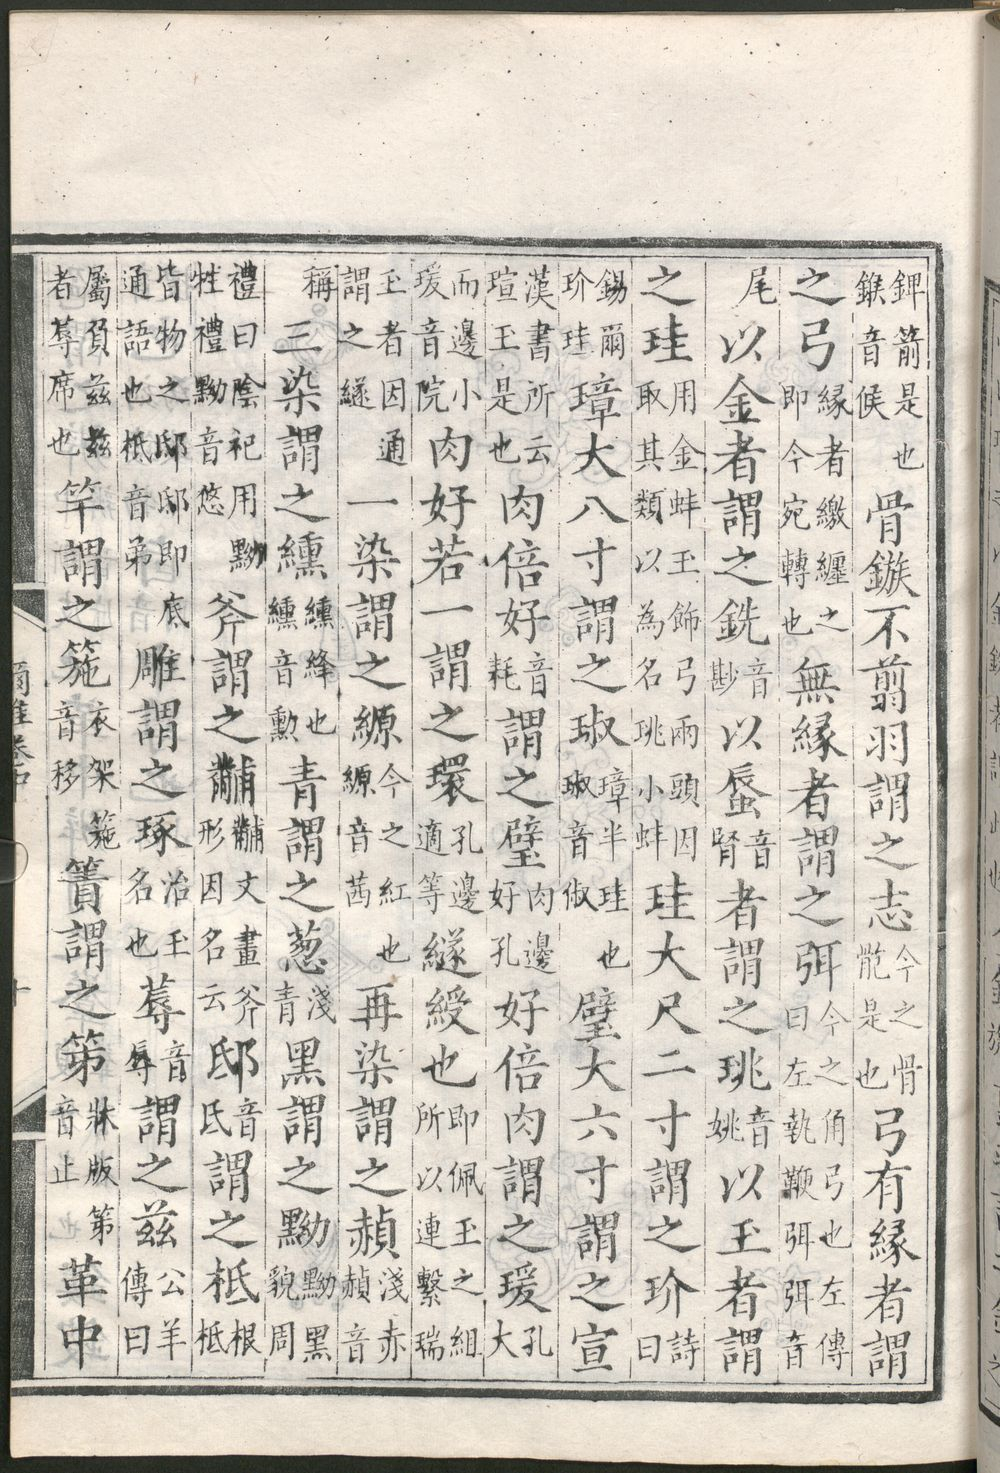 錍箭是也鍭音候骨鏃不翦羽謂之志今之骨骲是也弓有緣者謂
之弓緣者繳纏之即今宛轉也無緣者謂之弭今之角弓也左傳曰左執鞭弭弭音
尾以金者謂之銑音尠以蜃音腎者謂之珧音姚以玉者謂
之珪用金蚌玉飾弓兩頭因取其類以為名珧小蚌珪大尺二寸謂之玠詩曰
錫爾玠珪璋大八寸謂之琡璋半珪也琡音俶璧大六寸謂之宣
漢書所云瑄玉是也肉倍好音耗謂之璧肉邊好孔好倍肉謂之瑗孔大
而邊小瑗音院肉好若一謂之環孔邊適等繸綬也即佩玉之組所以連繫瑞
玉者因通謂之繸一染謂之縓今之紅也縓音茜再染謂之赬淺赤赬音
稱三染謂之纁纁絳也纁音勳青謂之葱淺青黑謂之黝黝黑貌周
禮曰陰祀用黝牲禮黝音悠斧謂之黼黼文畫斧形因名云邸音氐謂之柢根柢
皆物之邸邸即底通語也柢音弟雕謂之琢治玉名也蓐音辱謂之茲公羊傳曰
屬負茲茲者蓐席也竿謂之箷衣架箷音移簀謂之第牀版第音止革中
爾雅卷中 十